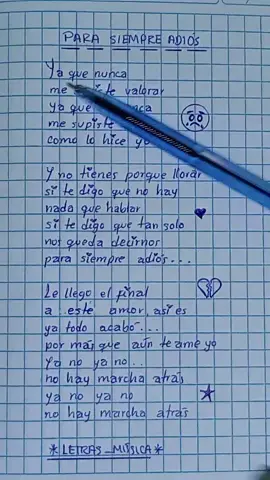 PARA SIEMPRE ADIÓS
Ya que nunca
me valorar
ya que
me supiste
como lo hice yo
Y no tienes porque llorar
si te digo que no hay
nada que hablar
si te digo que tan solo
nos queda decirnos
para siempre adiós...
Le llego el final
a este amor, asi es
ya todo acabó...
por más que aún te ame yo
Ya no ya no...
no hay marcha atrás
ya no ya no
no hay marcha atrás
*LETRAS_MÚSICA*